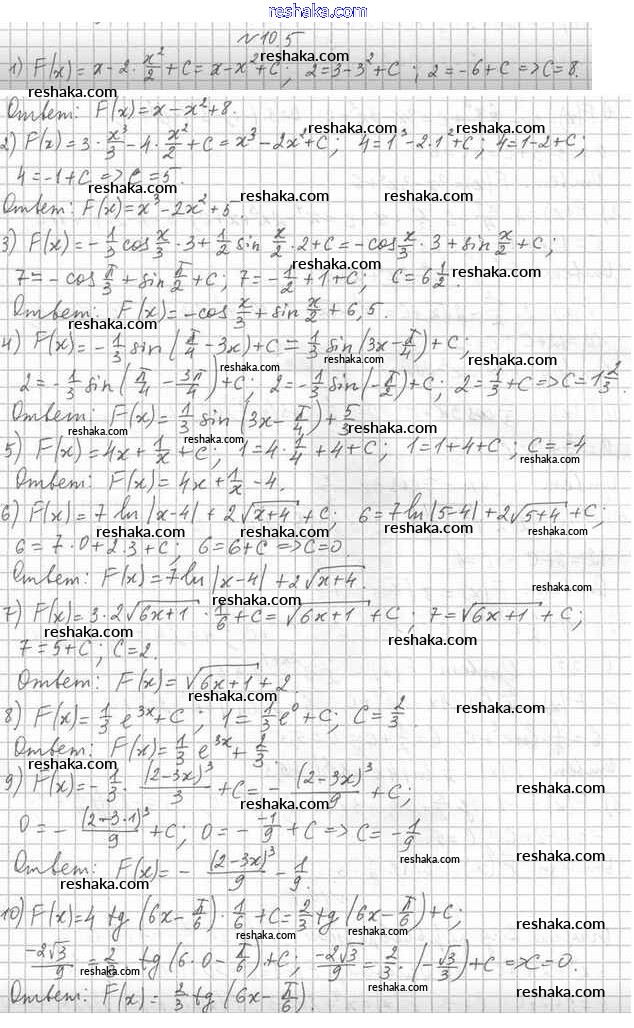 reshaka.com
№10.5
1) F(x)=x-2·x²/2+C=x-x²+C; 2=3-3²+C; 2=-6+C=>C=8.
Ответ: F(x)=x-x²+8.
2) F(x)=3·x³/3-4·x²/2+C=x³-2x²+C; 4=1³-2·1²+C; 4=1-2+C;
4=-1+C=>C=5.
Ответ: F(x)=x³-2x²+5.
3) F(x)=-1/3 cos x/3·3+1/2 sin x/2·2+C=-cos x/3·3+sin x/2+C;
7=-cos π/3+sin π/2+C; 7=-1/2+1+C; C=6 1/2.
Ответ: F(x)=-cos x/3+sin x/2+6,5.
4) F(x)=-1/3 sin(π/4-3x)+C=1/3 sin(3x-π/4)+C;
2=-1/3 sin(π/4-3π/4)+C; 2=-1/3 sin(-π/2)+C; 2=1/3+C=>C=1 2/3.
Ответ: F(x)=1/3 sin(3x-π/4)+5/3
5) F(x)=4x+1/x+C; 1=4·1/4+4+C; 1=1+4+C; C=-4
Ответ: F(x)=4x+1/x-4.
6) F(x)=7 ln|x-4|+2√(x+4)+C; 6=7 ln|5-4|+2√(5+4)+C;
6=7·0+2·3+C; 6=6+C=>C=0.
Ответ: F(x)=7 ln|x-4|+2√(x+4).
7) F(x)=3·2√(6x+1)·1/6+C=√(6x+1)+C; 7=√(6x+1)+C;
7=5+C; C=2.
Ответ: F(x)=√(6x+1)+2.
8) F(x)=1/3 e³ˣ+C; 1=1/3 e⁰+C; C=2/3.
Ответ: F(x)=1/3 e³ˣ+2/3.
9) F(x)=-1/3·(2-3x)³/3+C=-(2-3x)³/9+C;
0=-(2-3·1)³/9+C; 0=-(-1)/9+C=>C=-1/9
Ответ: F(x)=-(2-3x)³/9-1/9.
10) F(x)=4 tg(6x-π/6)·1/6+C=2/3 tg(6x-π/6)+C;
-2√3/9=2/3 tg(6·0-π/6)+C; -2√3/9=2/3·(-√3/3)+C=>C=0.
Ответ: F(x)=2/3 tg(6x-π/6).